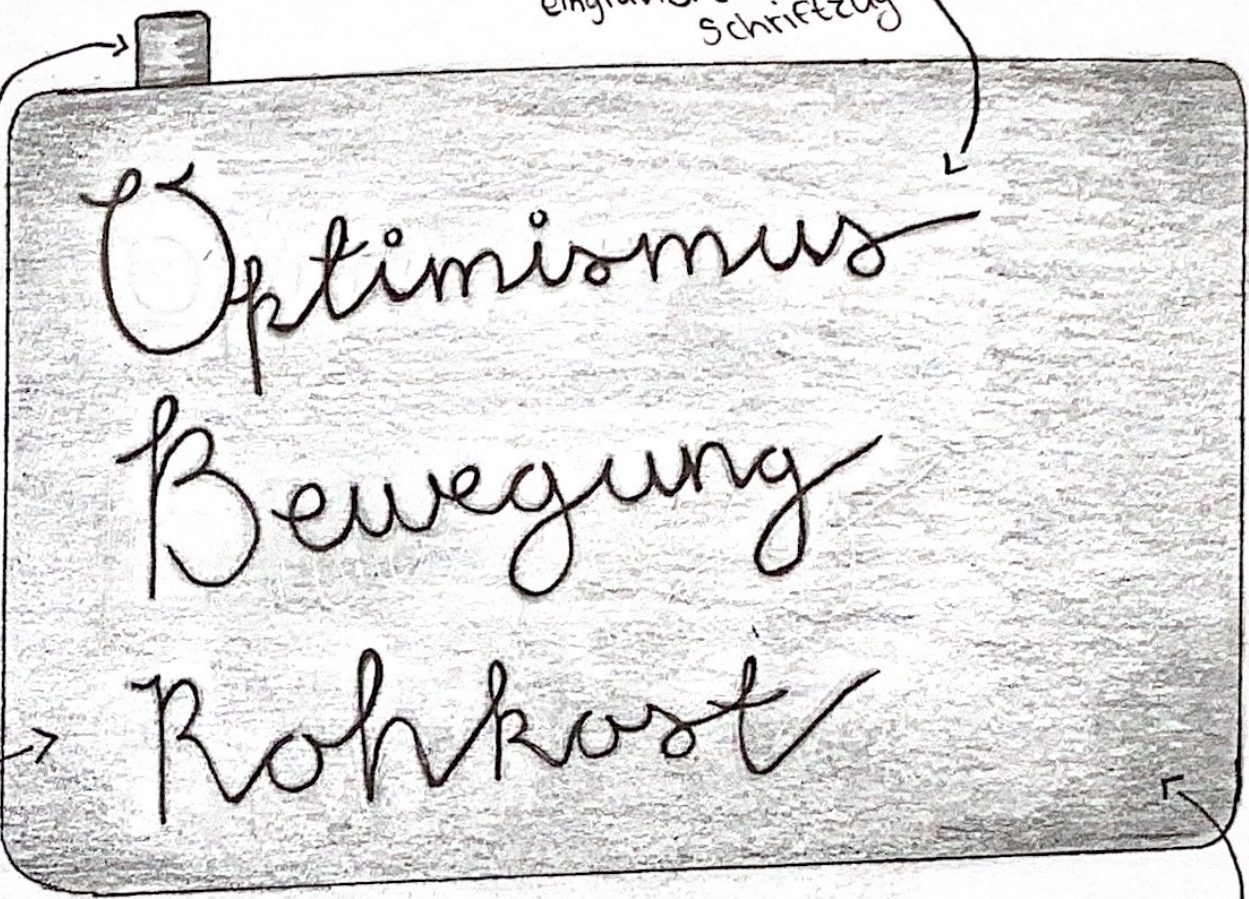 Schriftzug
Optimismus
Bewegung
Rohkost